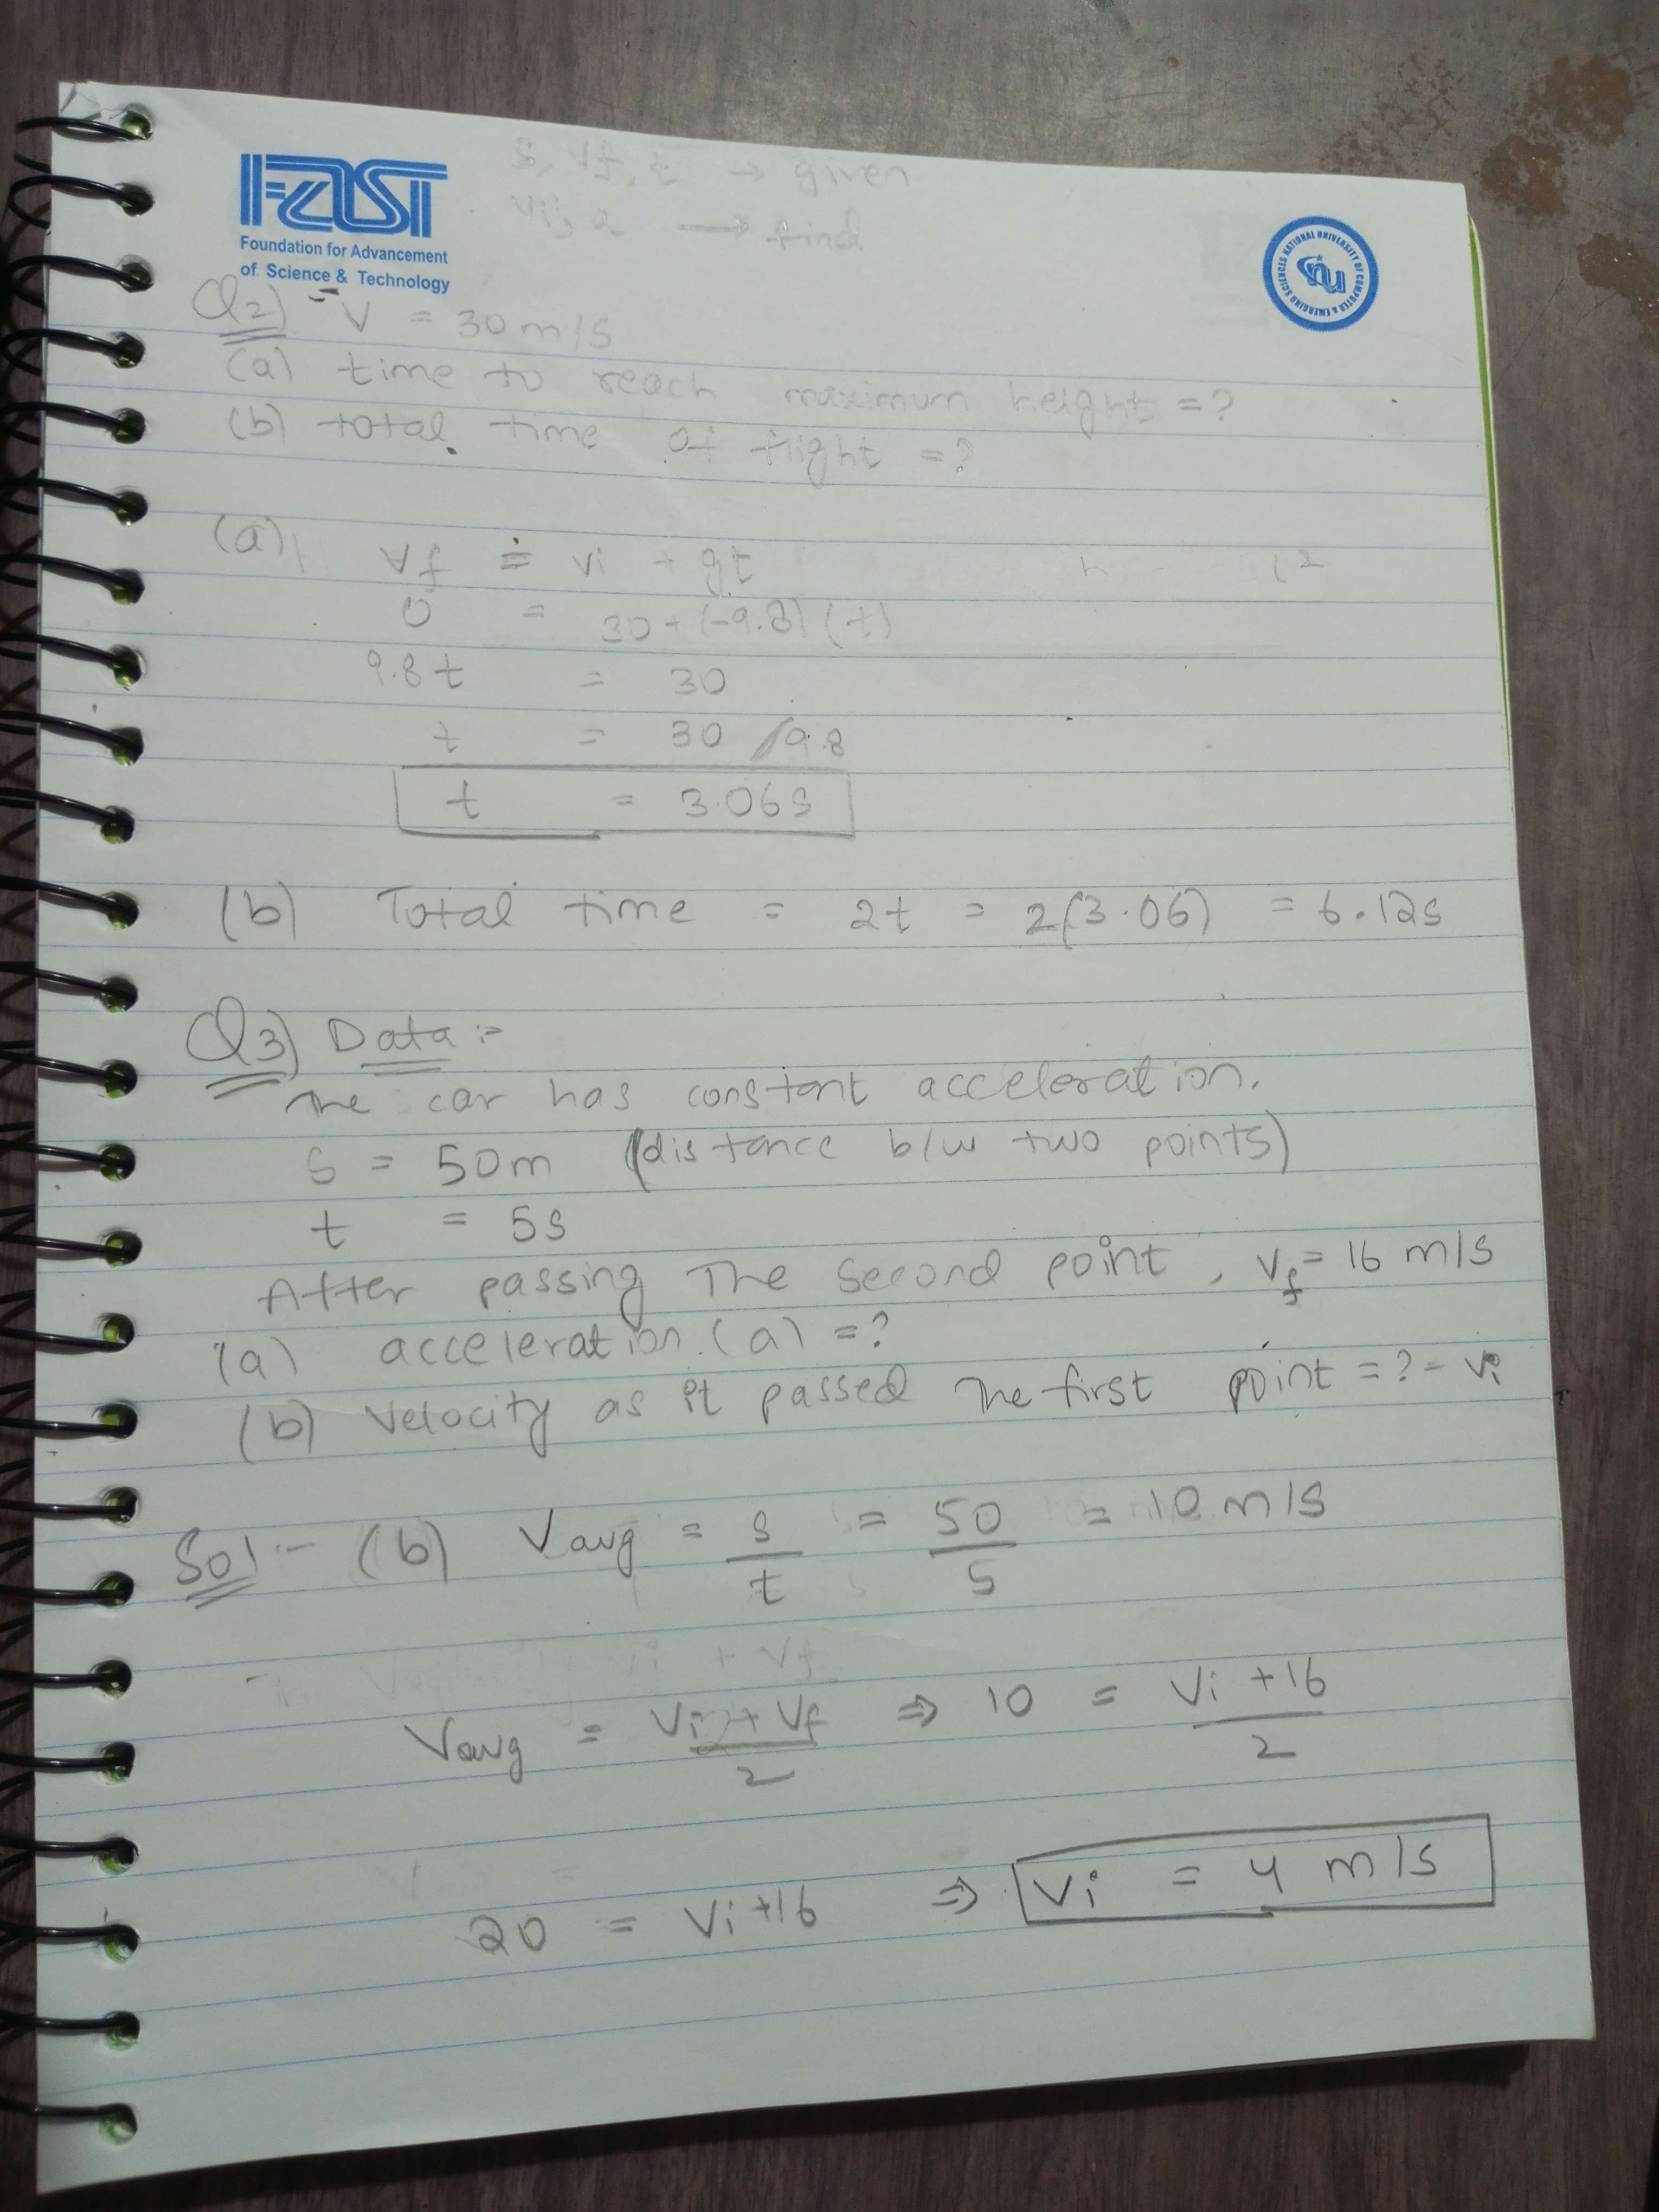 s, vf, t → given
vi, a → find
FAST
Foundation for Advancement
of Science & Technology
NATIONAL UNIVERSITY OF COMPUTER & EMERGING SCIENCES
nu
Q2) V = 30 m/s
(a) time to reach maximum height = ?
(b) total time of flight = ?
(a) vf = vi + gt
0 = 30 + (-9.8) (t)
9.8t = 30
t = 30 / 9.8
t = 3.06s
(b) Total time = 2t = 2(3.06) = 6.12s
Q3) Data :-
The car has constant acceleration.
S = 50m (distance b/w two points)
t = 5s
After passing The second point, vf = 16 m/s
(a) acceleration (a) = ?
(b) Velocity as it passed The first point = ? = vi
Sol :- (b) Vavg = s/t = 50/5 = 10 m/s
Vavg = Vi + Vf / 2 ⇒ 10 = Vi + 16 / 2
20 = Vi + 16 ⇒ Vi = 4 m/s